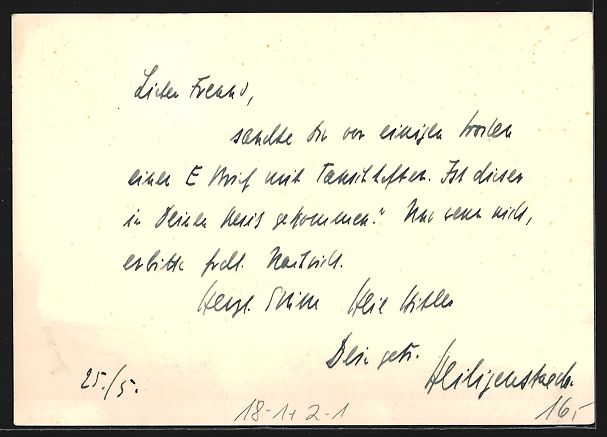 Lieber Freund,
sandte Dir vor einigen Wochen
einen E Brief mit Tauschheften. Ist dieser
in Deinen Besitz gekommen? Nur wenn nicht,
erbitte frdl. Nachricht.
Herzl. Grüsse Heil Hitler
Dein getr.
25./5.
18-1+2-1
16,-